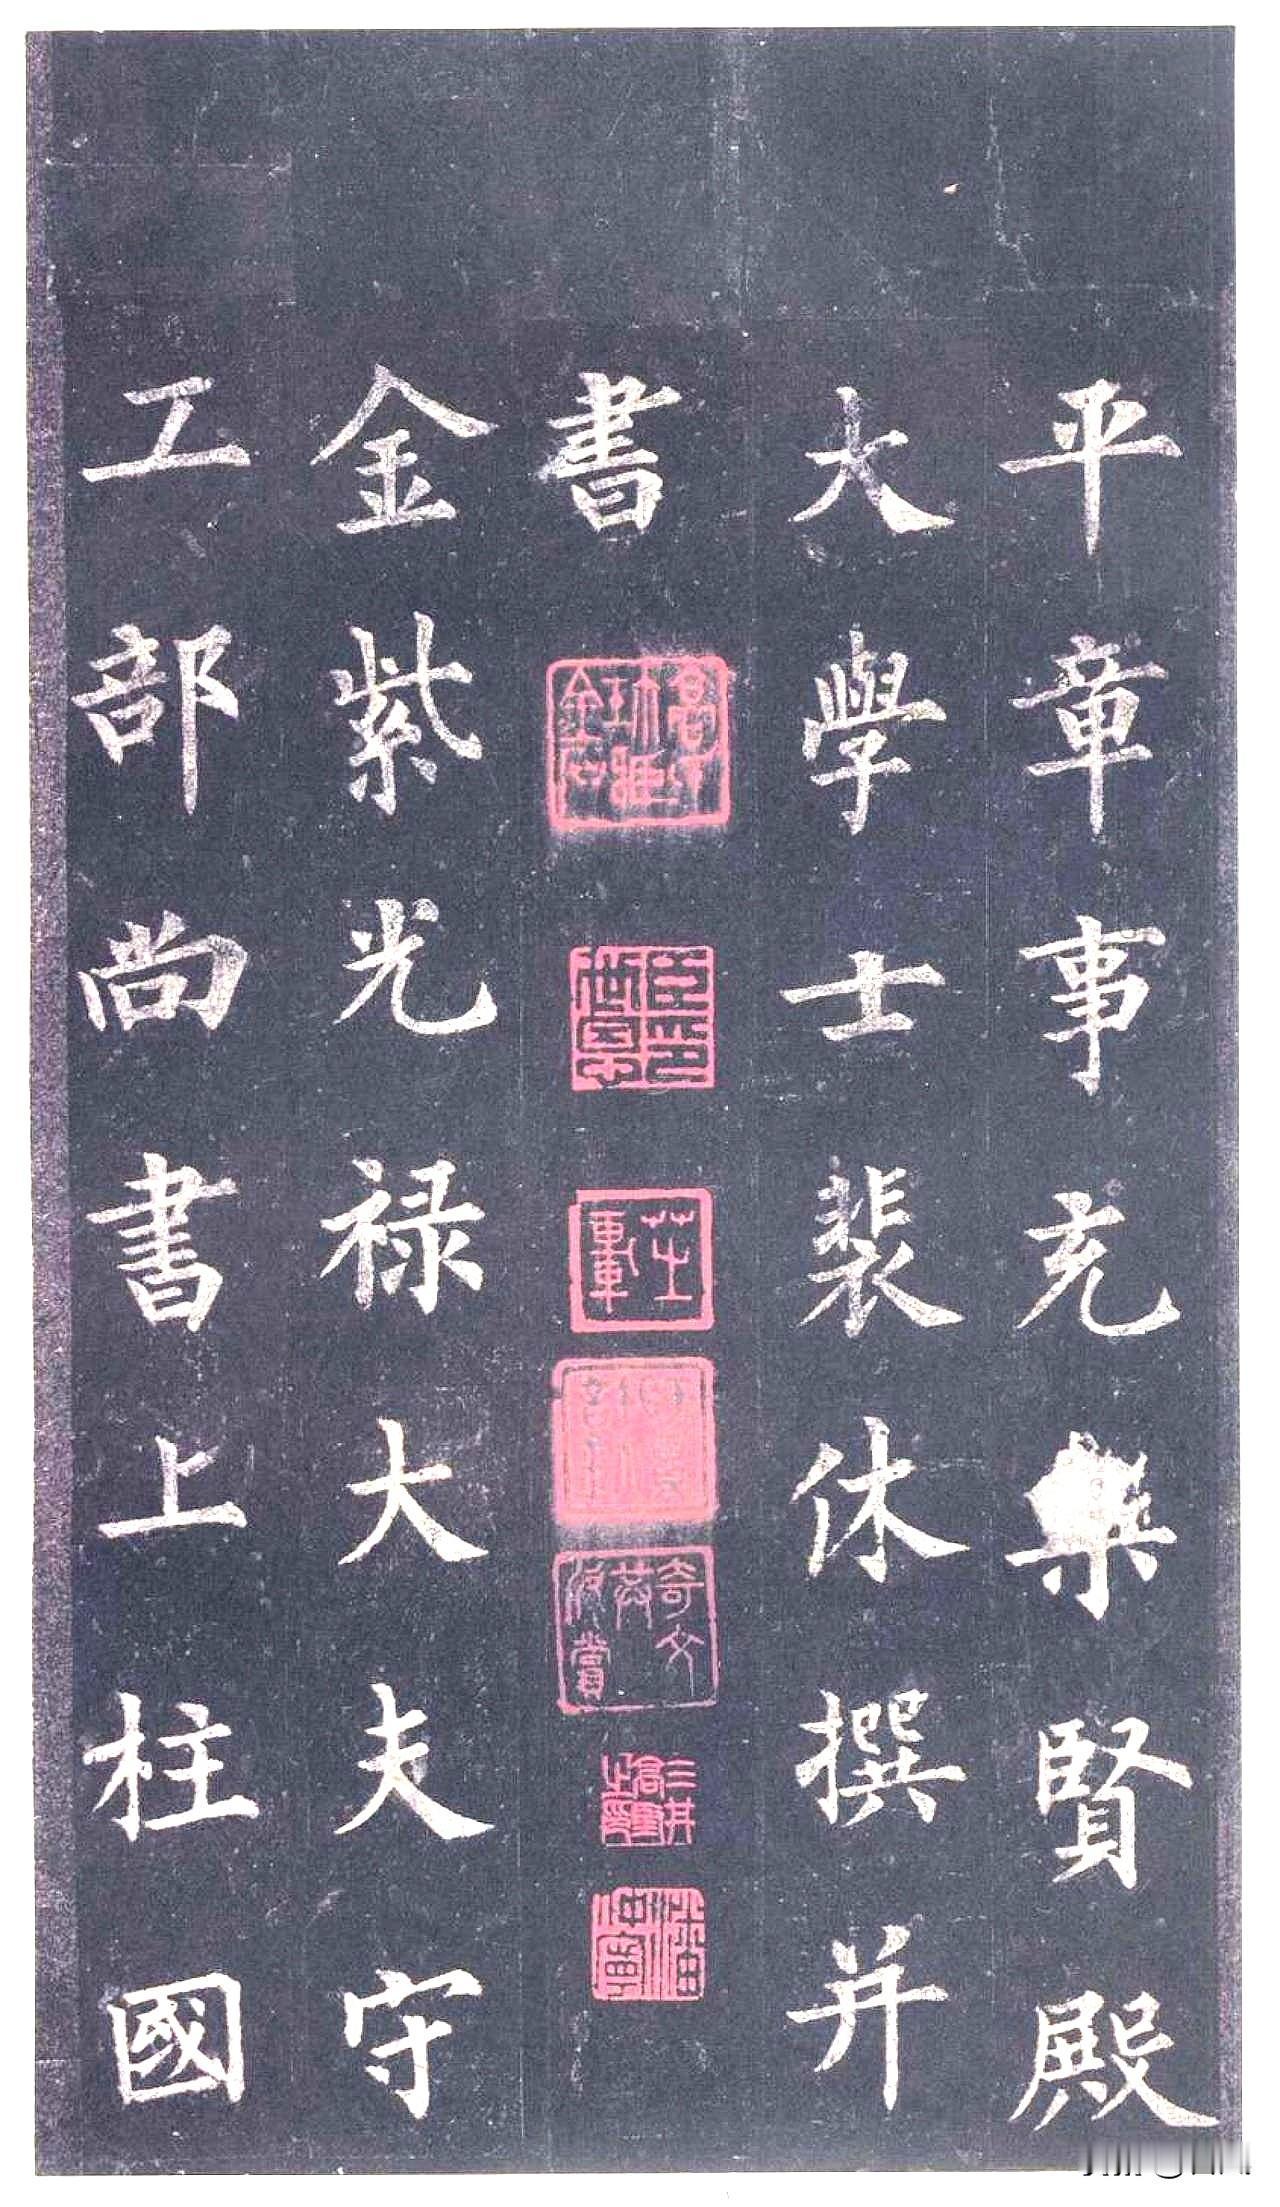 平章事充集賢殿
大學士裴休撰并
書
奇文共欣賞
金紫光祿大夫守
工部尚書上柱國